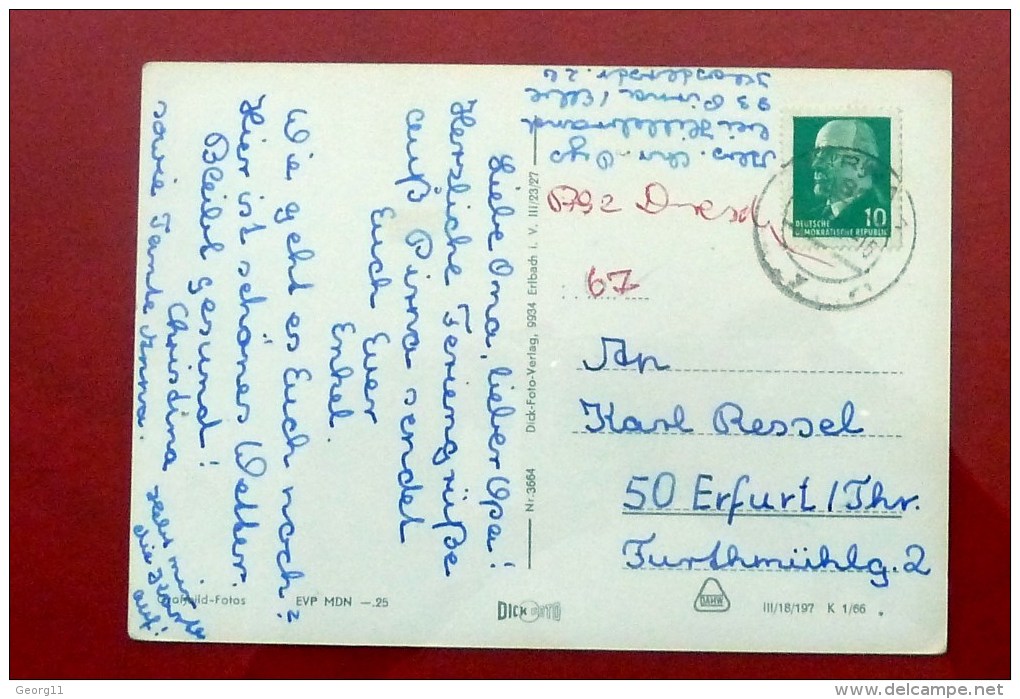 Liebe Oma, lieber Opa!
Herzliche Feriengrüße
auß Pirna sendet
Euch Euer
Enkel.
Wie geht es Euch noch?
Hier ist schönes Wetter.
Bleibt gesund!
Christina
sowie Tante Anna.
hebt mir
die Karte
auf!
Abs. Chr.
bei Hillebrand
93 Pirna / Elbe
DEUTSCHE
DEMOKRATISCHE REPUBLIK
10
67
An
Karl Ressel
50 Erfurt / Thr.
Furthmühlg. 2
Nr. 3664 Dick-Foto-Verlag, 9934 Erlbach i. V. III/23/27
EVP MDN —.25
DICK FOTO
DAHW
III/18/197 K 1/66
Georg11
www.delcampe.net